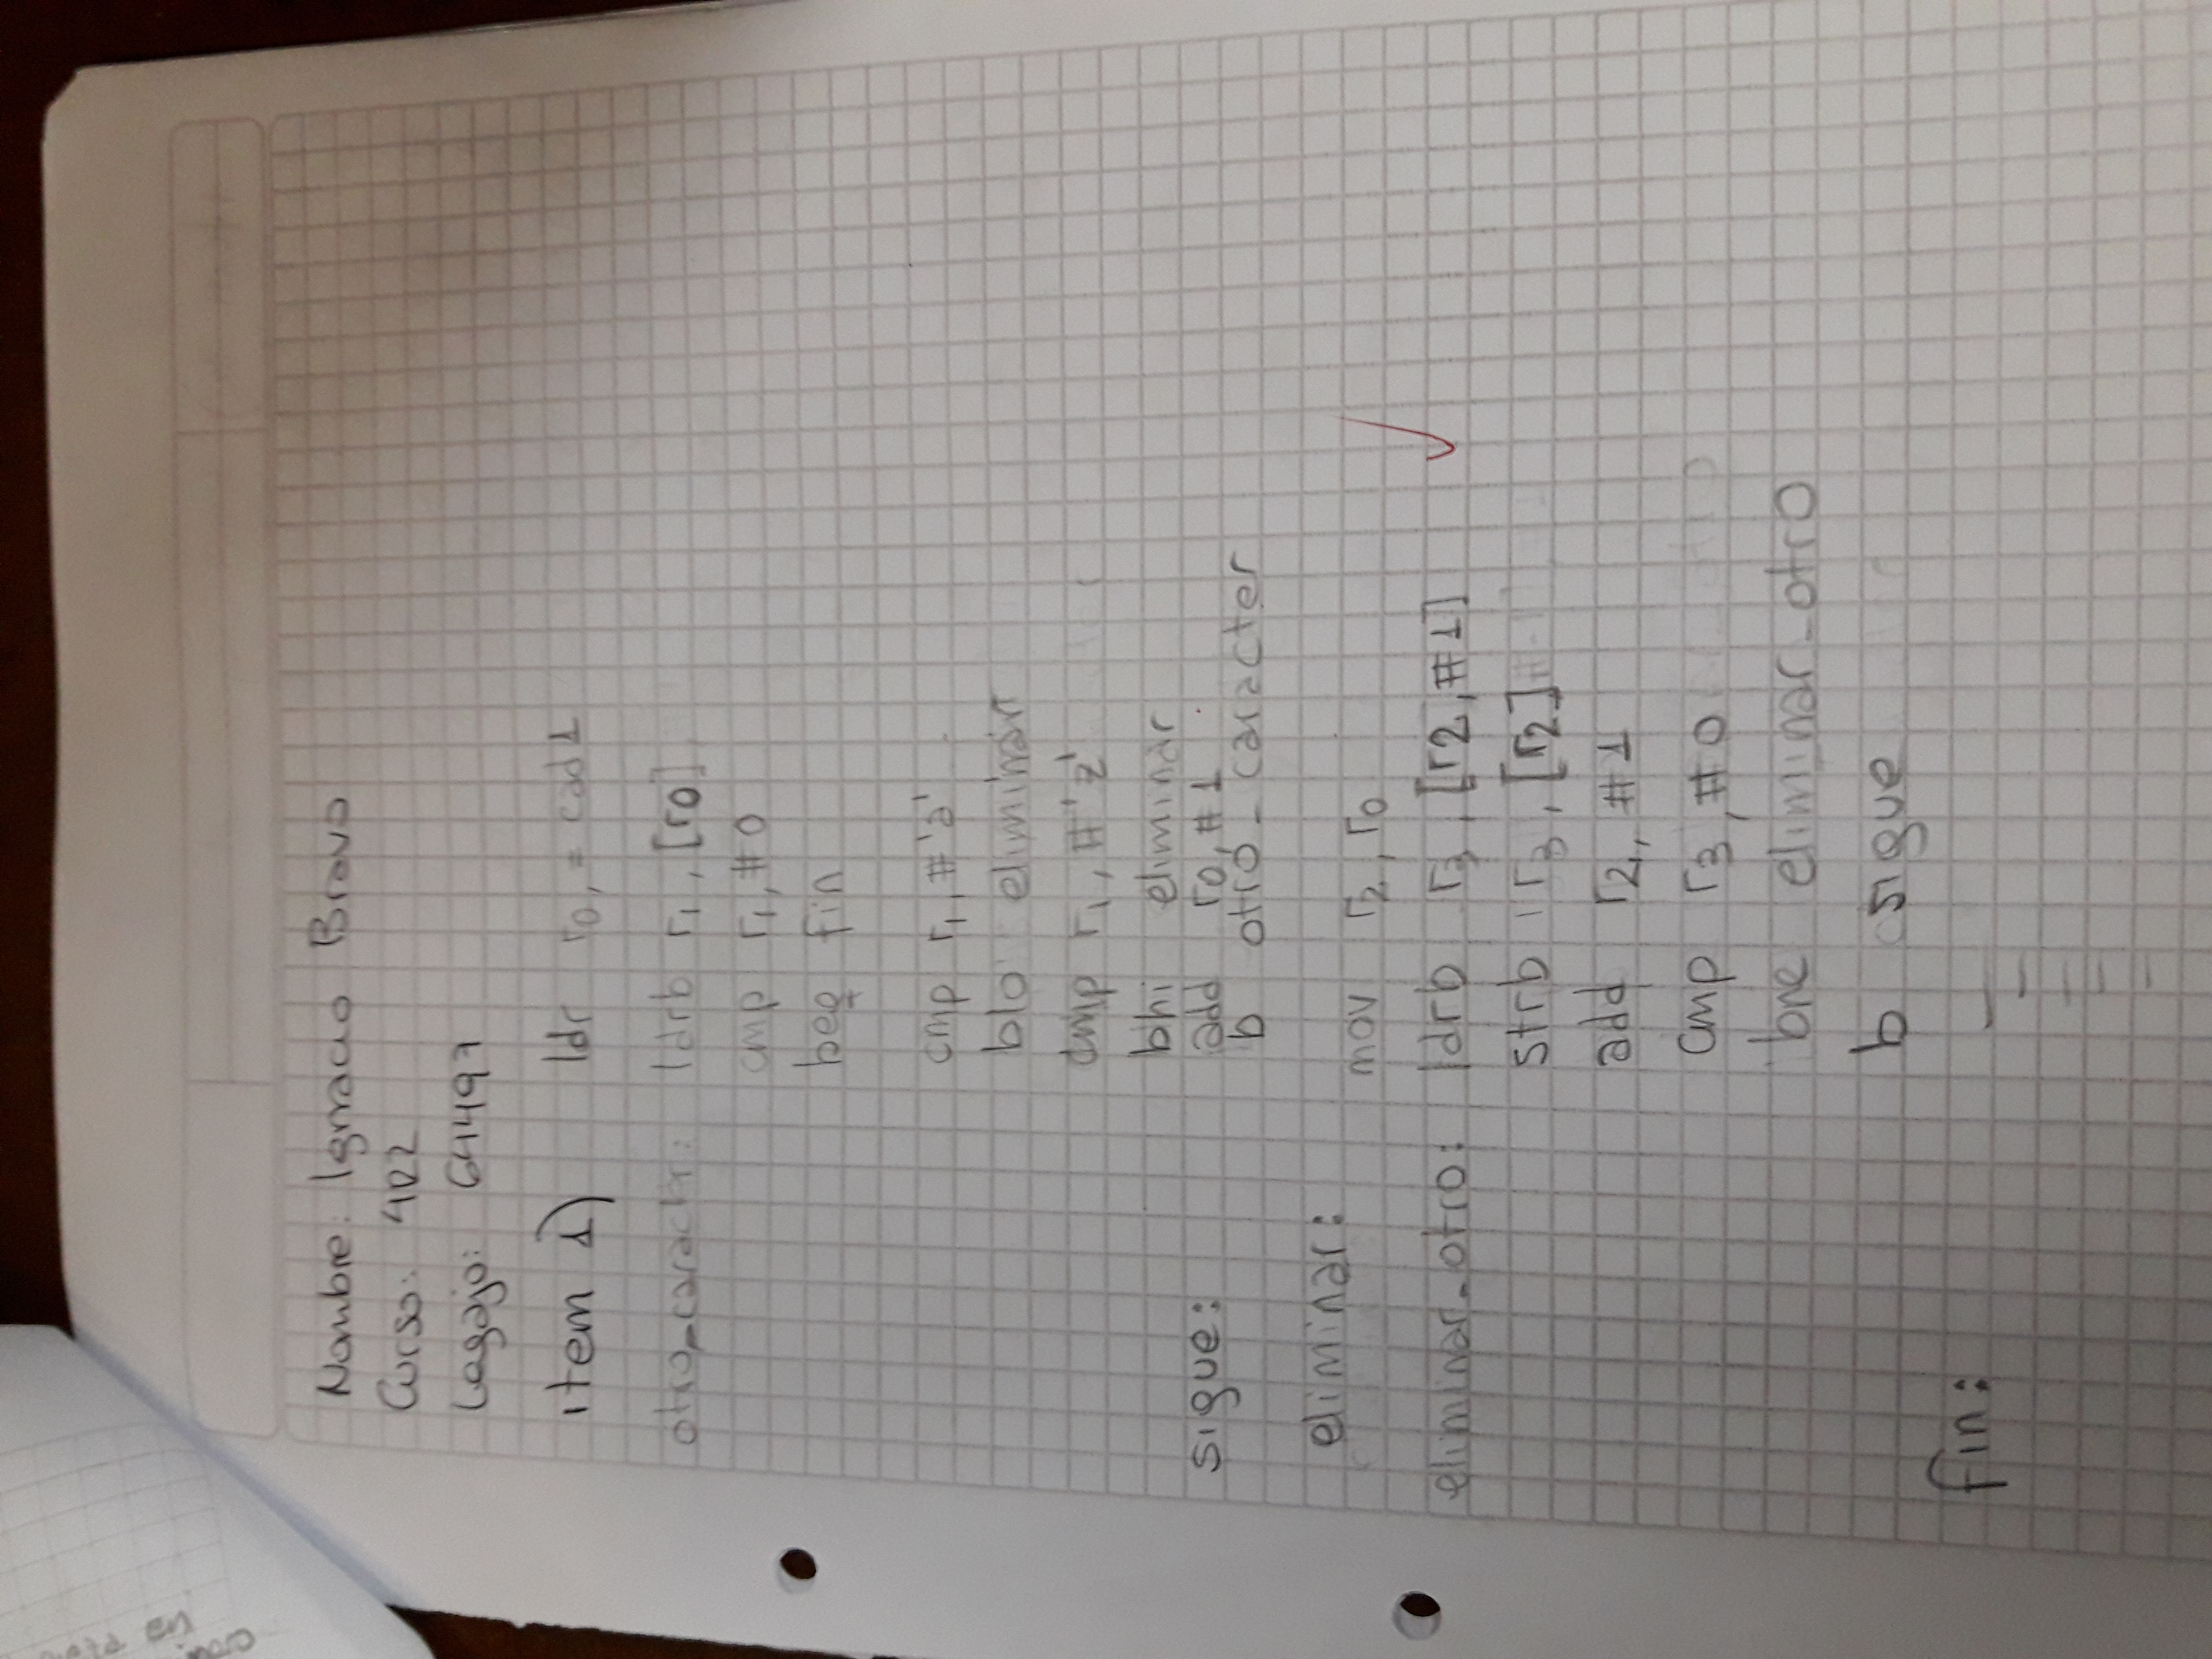 Nombre: Ignacio Bravo
Curso: 402
Legajo: 64497
item 1) ldr r0, = cad1
otro_caracter: ldrb r1, [r0]
cmp r1, #0
beq fin
cmp r1, #'a'
blo eliminar
cmp r1, #'z'
bhi eliminar
sigue: add r0, #1
b otro_caracter
eliminar:
mov r2, r0
eliminar_otro: ldrb r3, [r2, #1]
strb r3, [r2]
add r2, #1
cmp r3, #0
bne eliminar_otro
b sigue
fin: